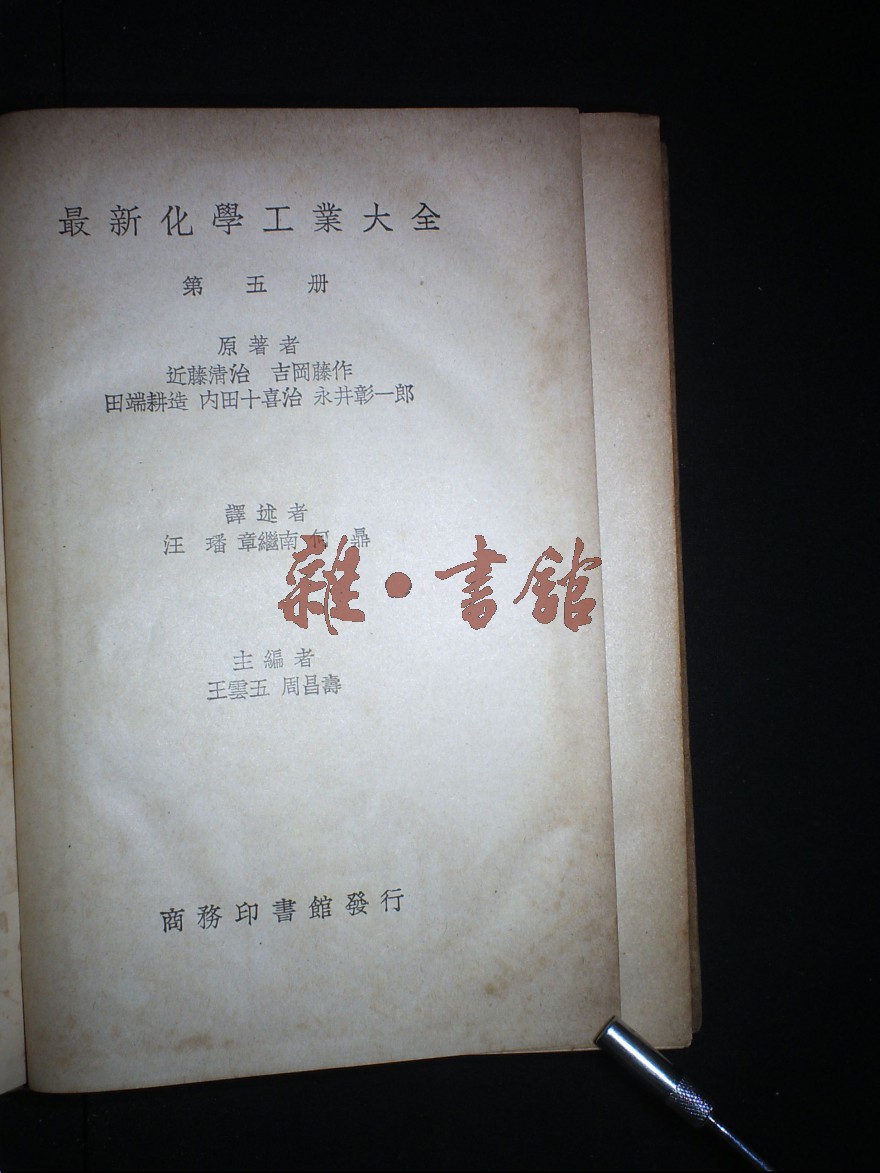 最新化學工業大全
第五册
原著者
近藤淸治 吉岡藤作
田端耕造 內田十喜治 永井彰一郎
譯述者
汪 璠 章繼南 何 鼎
主編者
王雲五 周昌壽
商務印書館發行
雜·書館